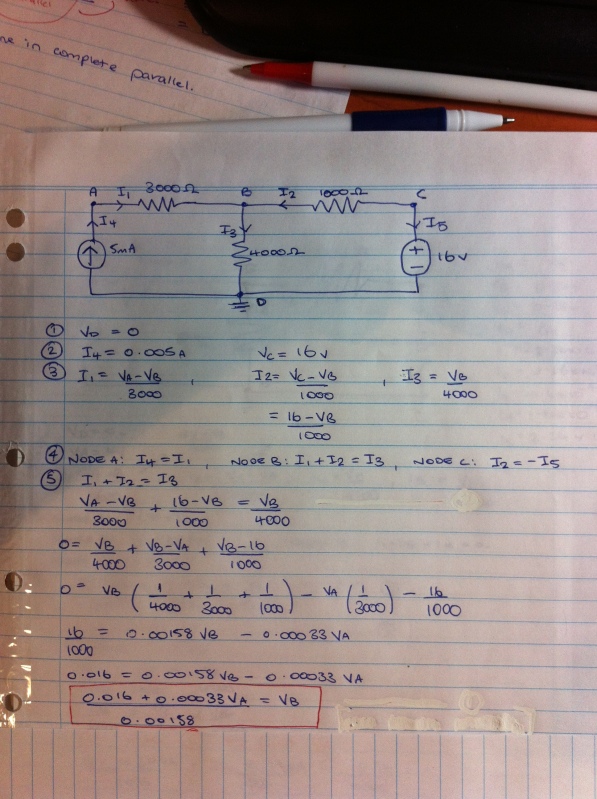 ne in complete parallel.
A I1 3000Ω B I2 1000Ω C
I4 I3 I5
5mA 4000Ω + − 16V
D
① VD = 0
② I4 = 0.005A VC = 16V
③ I1 = VA−VB/3000 , I2 = VC−VB/1000 , I3 = VB/4000
= 16−VB/1000
④ NODE A: I4 = I1 , NODE B: I1 + I2 = I3 , NODE C: I2 = −I5
⑤ I1 + I2 = I3
VA−VB/3000 + 16−VB/1000 = VB/4000
0 = VB/4000 + VB−VA/3000 + VB−16/1000
0 = VB (1/4000 + 1/3000 + 1/1000) − VA (1/3000) − 16/1000
16/1000 = 0.00158 VB − 0.00033 VA
0.016 = 0.00158 VB − 0.00033 VA
0.016 + 0.00033 VA/0.00158 = VB